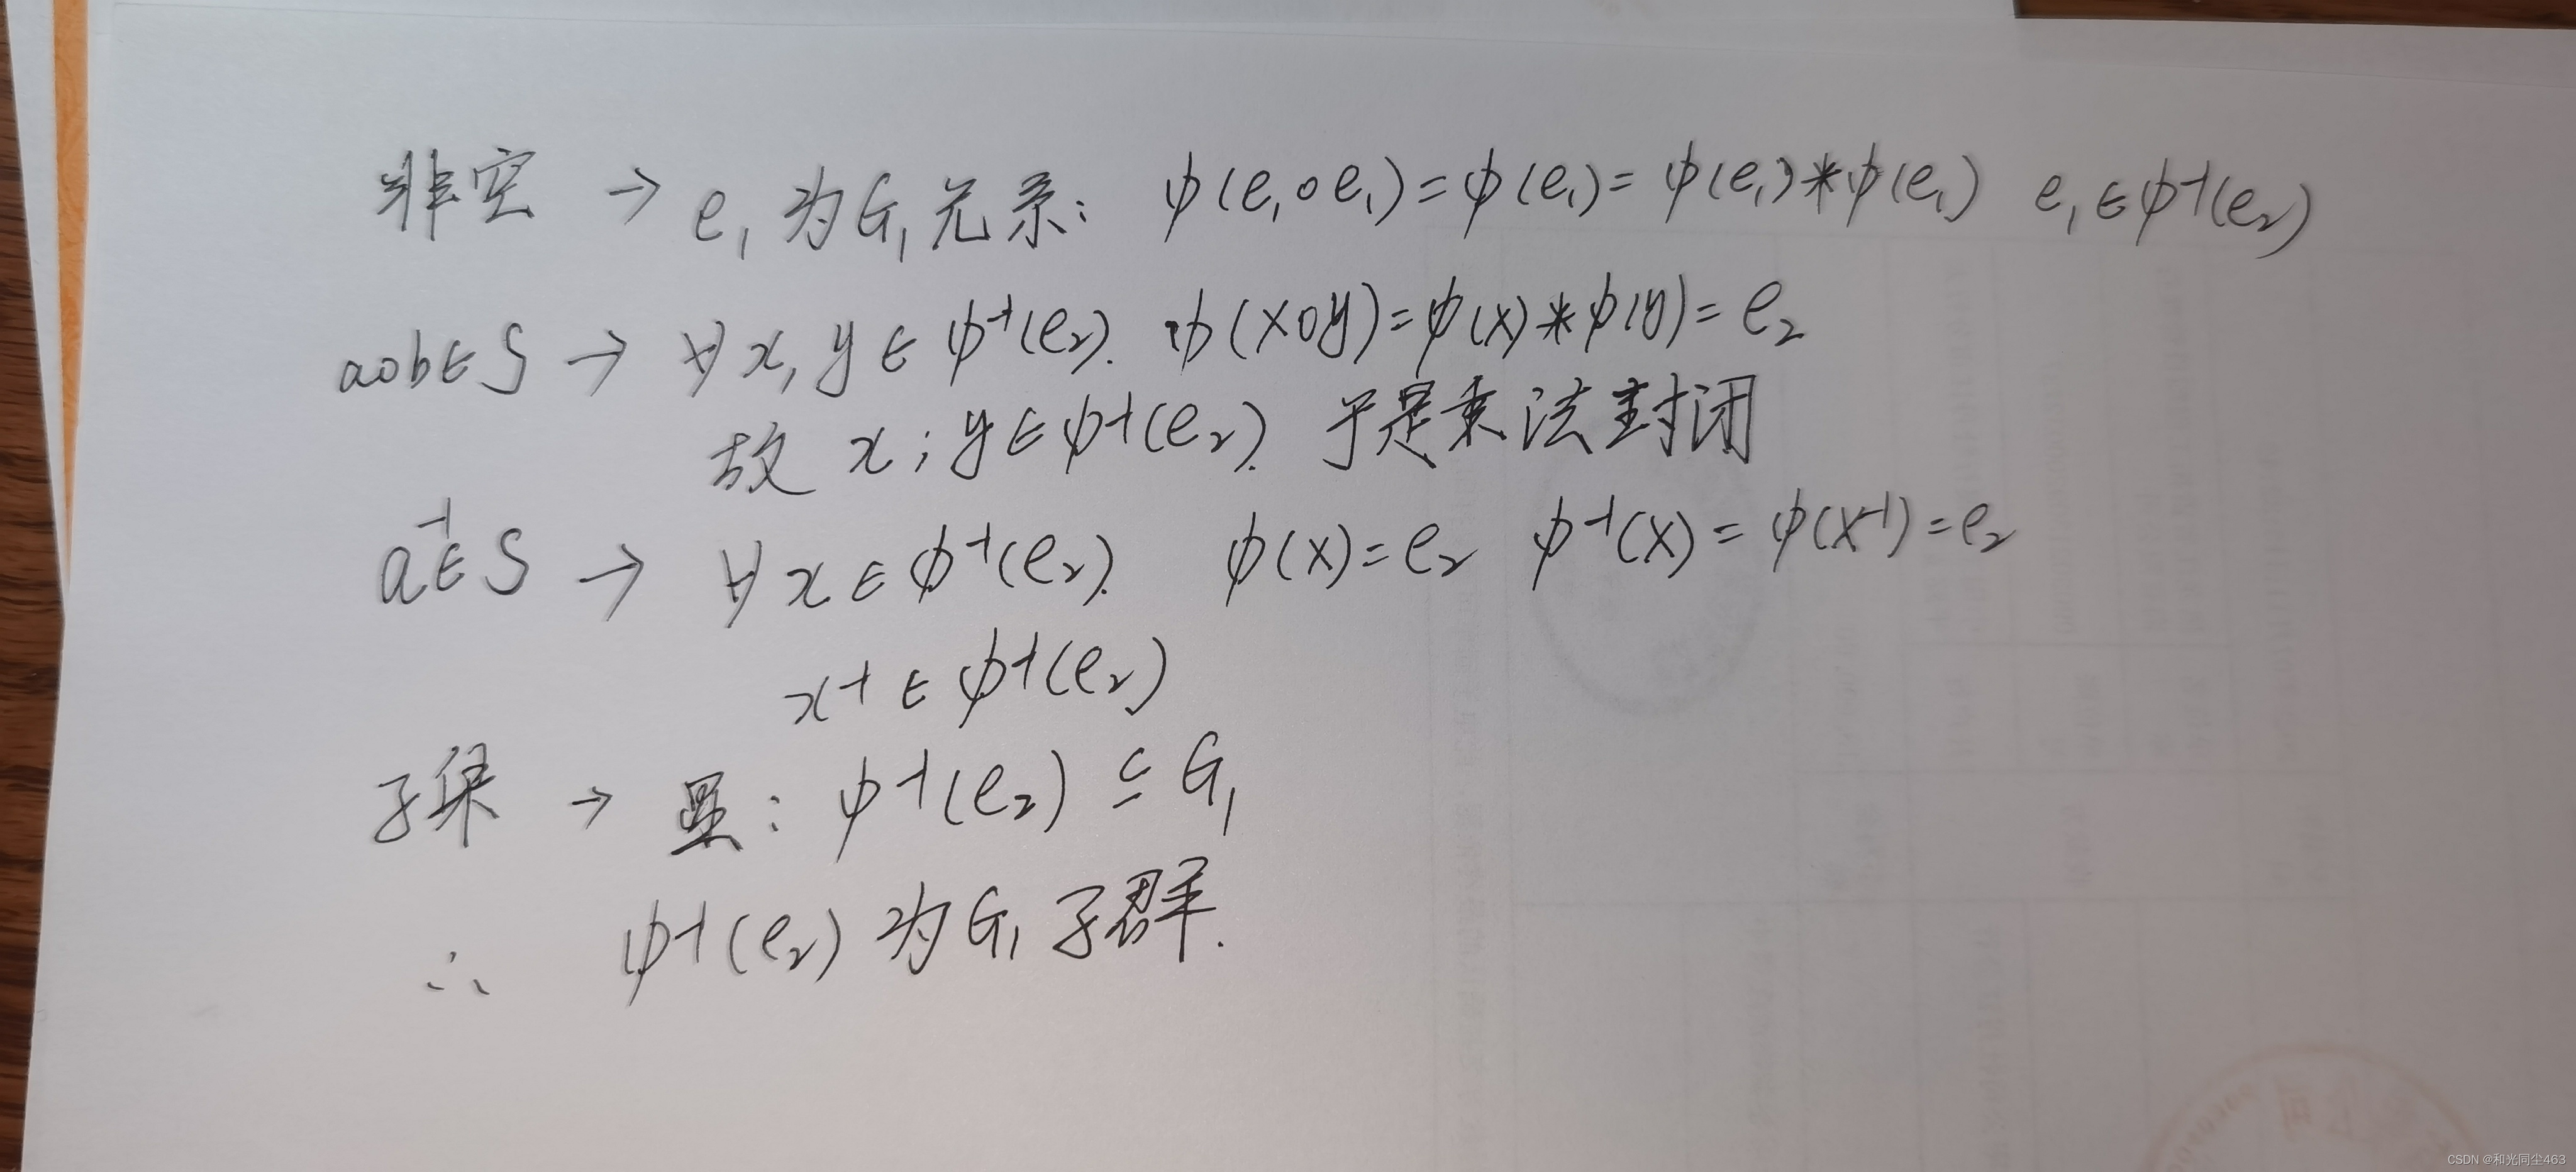 非空 → e₁为G₁元素: ψ(e₁∘e₁)=ψ(e₁)=ψ(e₁)*ψ(e₁) e₁∈ψ⁻¹(e₂)
a∘b∈S → ∀x,y∈ψ⁻¹(e₂). ψ(x∘y)=ψ(x)*ψ(y)=e₂
故 x;y∈ψ⁻¹(e₂). 于是乘法封闭
a⁻¹∈S → ∀x∈ψ⁻¹(e₂). ψ(x)=e₂ ψ⁻¹(x)=ψ(x⁻¹)=e₂
x⁻¹∈ψ⁻¹(e₂)
子集 → 显: ψ⁻¹(e₂)⊆G₁
∴ ψ⁻¹(e₂)为G₁子群.
CSDN @和光同尘463